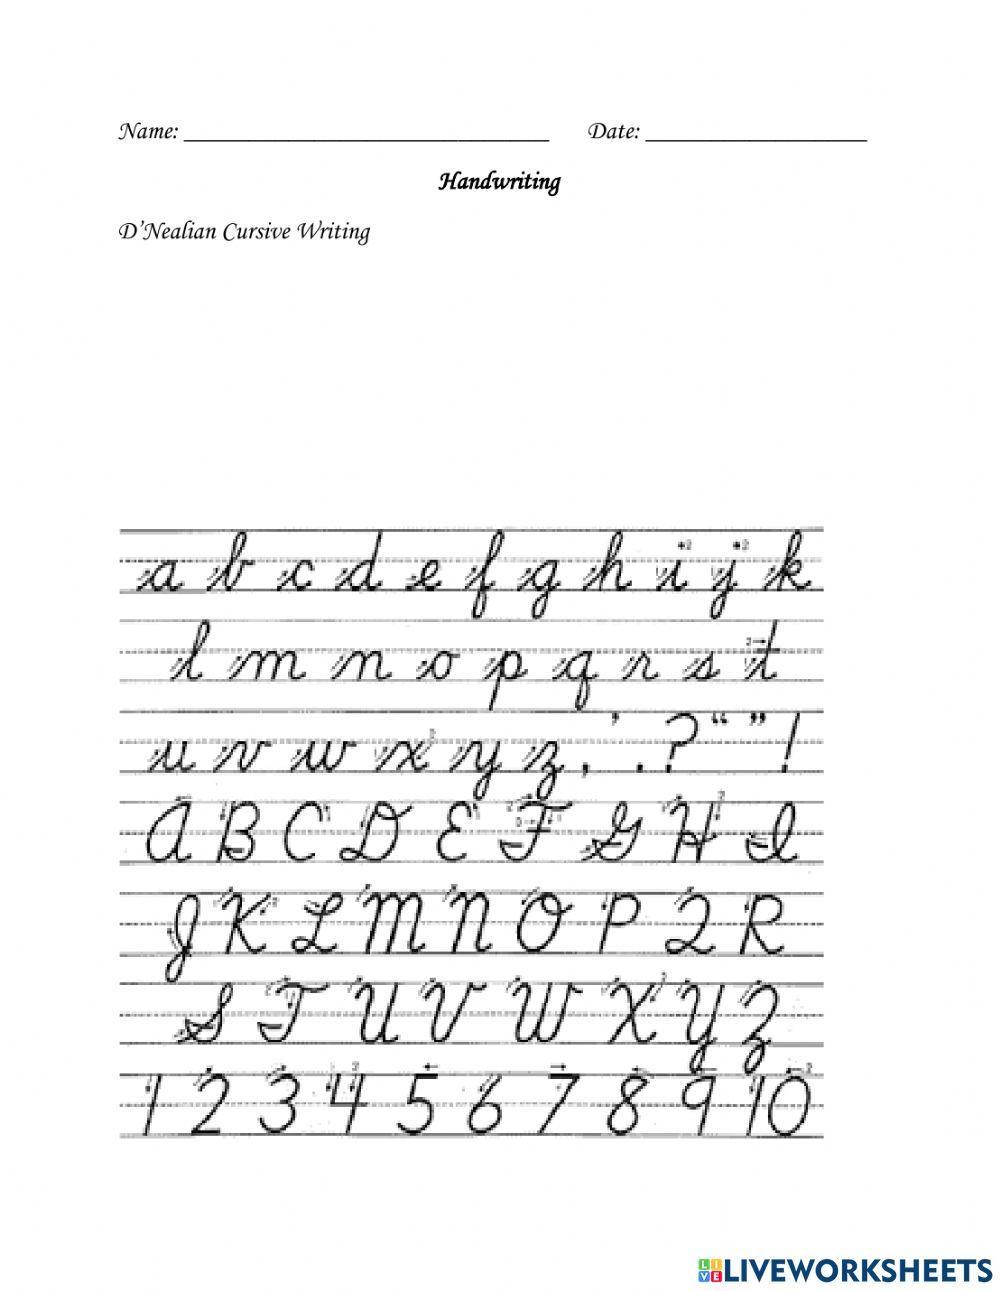 Name: ____________________________ Date: _________________
Handwriting
D'Nealian Cursive Writing
a b c d e f g h i j k
l m n o p q r s t
u v w x y z , ' . ? “ ” !
A B C D E F G H I
J K L M N O P Q R
S T U V W X Y Z
1 2 3 4 5 6 7 8 9 10
LIVE LIVEWORKSHEETS